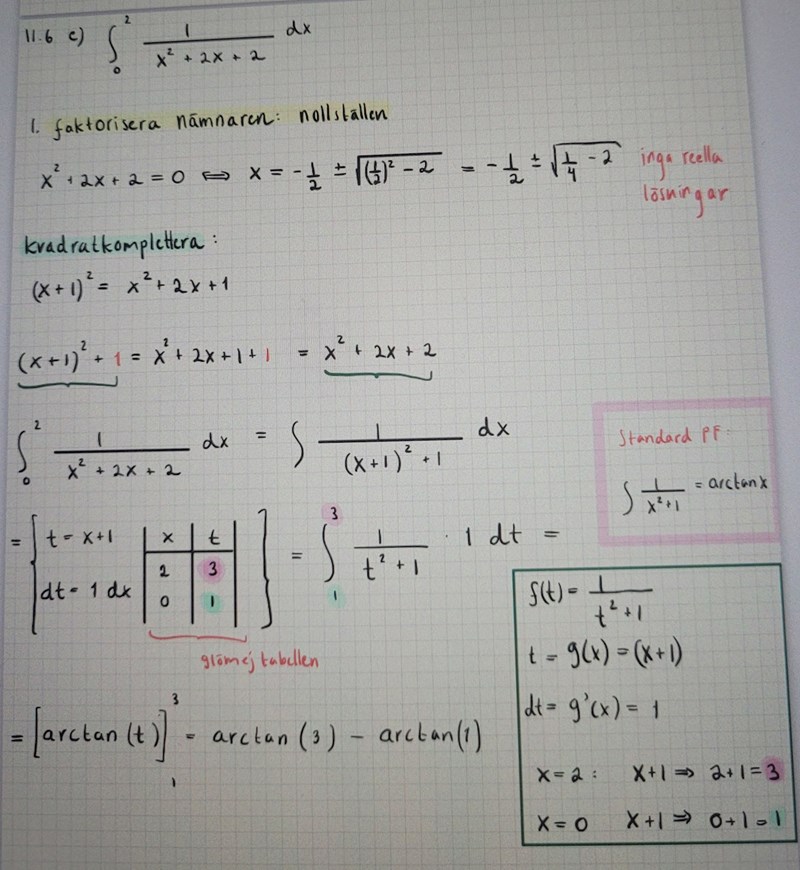 11.6 c) ∫₀² 1/(x² + 2x + 2) dx
1. faktorisera nämnaren: nollställen
x² + 2x + 2 = 0 ⟺ x = -1/2 ± √((1/2)² - 2) = -1/2 ± √(1/4 - 2) inga reella
lösningar
kvadratkomplettera:
(x+1)² = x² + 2x + 1
(x+1)² + 1 = x² + 2x + 1 + 1 = x² + 2x + 2
∫₀² 1/(x² + 2x + 2) dx = ∫ 1/((x+1)² + 1) dx
Standard PF:
∫ 1/(x²+1) = arctan x
= { t = x+1 | x | t | } = ∫₁³ 1/(t² + 1) · 1 dt =
dt = 1 dx | 2 | 3 |
| 0 | 1 |
glöm ej tabellen
= [arctan(t)]₁³ = arctan(3) - arctan(1)
f(t) = 1/(t²+1)
t = g(x) = (x+1)
dt = g'(x) = 1
x = 2: x+1 ⇒ 2+1 = 3
x = 0 x+1 ⇒ 0+1 = 1